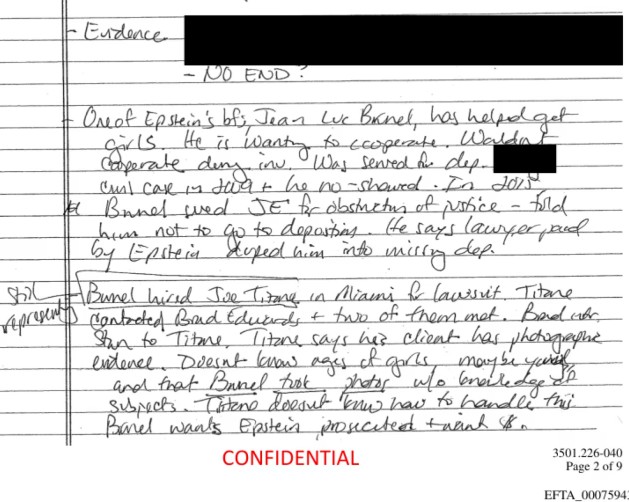 - Evidence
- NO END?
- One of Epstein's bf's, Jean Luc Brunel, has helped get
girls. He is wanting to cooperate. Wouldn't
cooperate during inv. Was served for dep.
civil case in 2009 + he no-showed. In 2015,
Brunel sued JE for obstruction of justice - told
him not to go to deposition. He says lawyer paid
by Epstein duped him into missing dep.
still represents
- Brunel hired Joe Titone in Miami for lawsuit. Titone
contacted Brad Edwards + two of them met. Brad
Stan to Titone. Titone says his client has photographic
evidence. Doesn't know ages of girls, maybe young
and that Brunel took photos w/o knowledge of
subjects. Titone doesn't know how to handle this
Brunel wants Epstein prosecuted + want $.
CONFIDENTIAL
3501.226-040
Page 2 of 9
EFTA_0007594